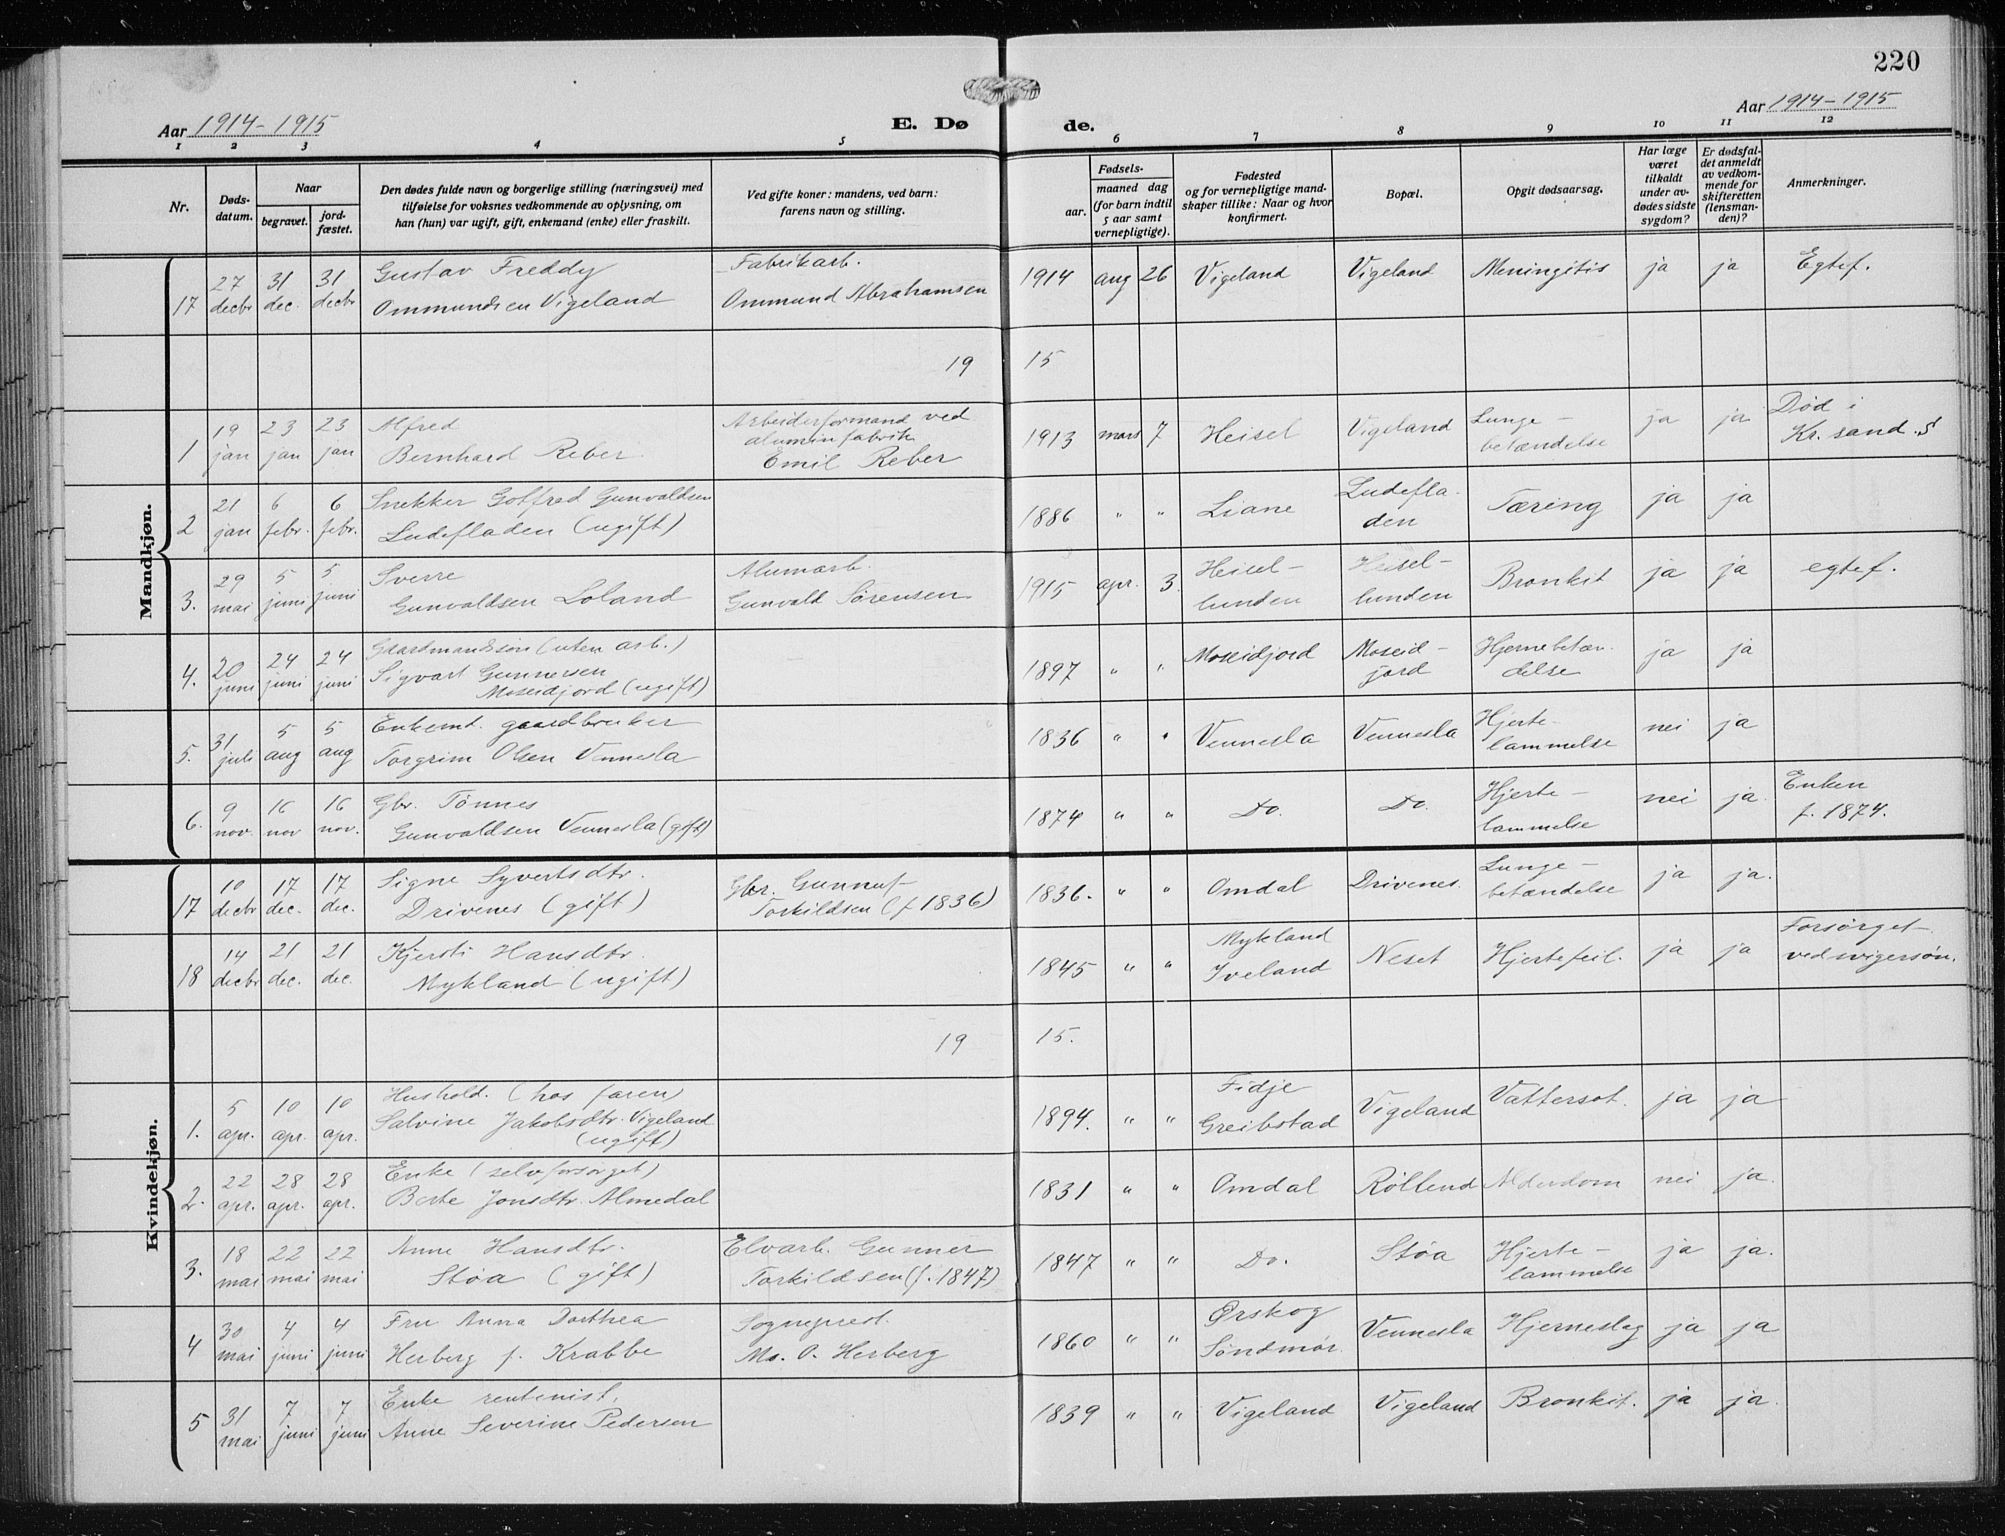 220
Aar 1914-1915
E. Dø
de.
Aar 1914-1915
1 2 3 4 5 6 7 8 9 10 11 12
Nr.
Døds-
datum.
Naar
begravet.
jord-
fæstet.
Den dødes fulde navn og borgerlige stilling (næringsvei) med
tilføielse for voksnes vedkommende av oplysning, om
han (hun) var ugift, gift, enkemand (enke) eller fraskilt.
Ved gifte koner: mandens, ved barn:
farens navn og stilling.
Fødsels-
aar.
maaned dag
(for barn indtil
5 aar samt
vernepligtige).
Fødested
og for vernepligtige mand-
skaper tillike: Naar og hvor
konfirmert.
Bopæl.
Opgit dødsaarsag.
Har læge
været
tilkaldt
under av-
dødes sidste
sygdom?
Er dødsfal-
det anmeldt
av vedkom-
mende for
skifteretten
(lensman-
den)?
Anmerkninger.
Mandkjøn.
17
27
decbr
31
dec.
31
decbr
Gustav Freddy
Ommundsen Vigeland
Fabrikarb.
Ommund Abrahamsen
1914 aug 26
Vigeland
Vigeland
Meningitis
ja
ja
Egtef.
19
15
1
19
jan
23
jan
23
jan
Alfred
Bernhard Reber
Arbeiderformand ved
aluminfabrik
Emil Reber
1913 mars 7
Heisel
Vigeland
Lunge-
betændelse
ja
ja
Død i
Kr.sand.S
2
21
jan
6
febr.
6
febr.
Snekker Gotfred Gunvaldsen
Ludefladen (ugift)
1886 " "
Liane
Ludefla-
den
Tæring
ja
ja
3.
29
mai
5
juni
5
juni
Sverre
Gunvaldsen Loland
Alumarb.
Gunvald Sørensen
1915 apr. 3
Heisel-
lunden
Heisel-
lunden
Bronkit
ja
ja
egtef.
4.
20
juni
24
juni
24
juni
Gaardmandssøn (uten arb.)
Sigvart Gunnersen
Moseidjord (ugift)
1897 " "
Moseidjord
Moseid-
jord
Hjernebetæn-
delse
ja
ja
5.
31
juli
5
aug
5
aug
Enkemd. gaardbruker
Torgrim Olsen Vennesla
1836 " "
Vennesla
Vennesla
Hjerte-
lammelse
nei
ja
6.
9
nov.
16
nov
16
nov.
Gbr. Tønnes
Gunvaldsen Vennesla (gift)
1874 " "
Do.
Do.
Hjerte-
lammelse
nei
ja.
Enken
f. 1874.
Kvindekjøn.
17
10
decbr
17
dec.
17
dec.
Signe Syvertsdtr.
Drivenes (gift)
Gbr. Gunnuf
Torkildsen (f 1836)
1836. " "
Omdal
Drivenes.
Lunge-
betændelse
ja
ja.
18
14
decbr
21
dec.
21
dec.
Kjersti Hansdtr.
Mykland (ugift)
1845 " "
Mykland
Iveland
Neset
Hjertefeil.
ja
ja
Forsørget
ved svigersøn.
19
15.
1.
5
apr.
10
apr.
10
apr.
Hushold. (hos faren)
Salvine Jakobsdtr. Vigeland
(ugift)
1894. " "
Fidje
Greibstad
Vigeland
Vattersot.
ja
ja
2.
22
apr.
28
apr.
28
apr.
Enke (selvforsørget)
Berte Jonsdtr. Almedal
1831 " "
Omdal
Røllend
Alderdom
nei
ja.
3.
18
mai
22
mai
22
mai
Anne Hansdtr.
Støa (gift)
Elvarb. Gunner
Torkildsen (f. 1847)
1847 " "
Do.
Støa
Hjerte-
lammelse
ja
ja.
4
30
mai
4
juni
4
juni
Fru Anna Dorthea
Herberg f. Krabbe
Sogneprest.
Ms. O. Herberg
1860 " "
Ørskog
Søndmør.
Vennesla
Hjerneslag
ja
ja
5
31
mai
7
juni
7
juni
Enke rentenist.
Anne Severine Pedersen
1839 " "
Vigeland
Vigeland
Bronkit.
ja
ja.